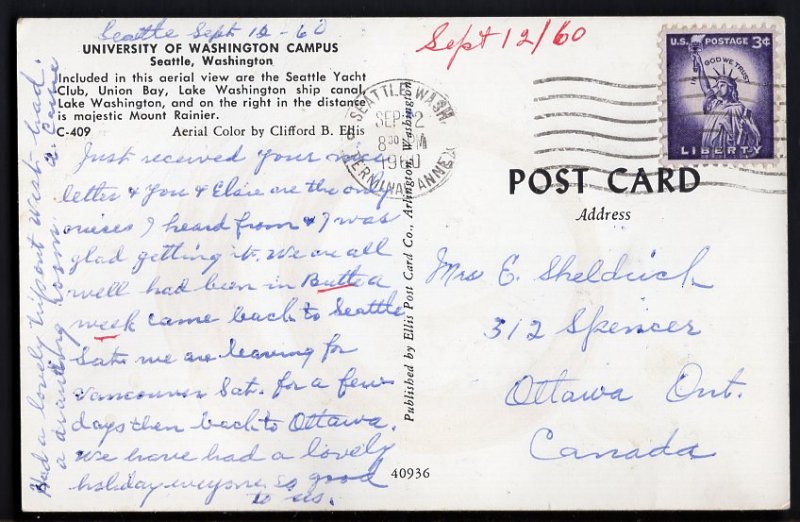 Seattle Sept 12 - 60
UNIVERSITY OF WASHINGTON CAMPUS
Seattle, Washington
Included in this aerial view are the Seattle Yacht
Club, Union Bay, Lake Washington ship canal,
Lake Washington, and on the right in the distance
is majestic Mount Rainier.
C-409 Aerial Color by Clifford B. Ellis
Just received your nice
letter & You & Elsie are the only
onices I heard from & I was
glad getting it. We are all
well had been in Butte a
week came back to Seattle
Sat. we are leaving for
Vancouver Sat. for a few
days then back to Ottawa.
We have had a lovely
holiday everyone so good
to us.
Had a lovely trip out west had
a drawing room
Published by Ellis Post Card Co., Arlington, Washington
40936
Sept 12/60
SEATTLE, WASH.
SEP 12
8 30 PM
1960
TERMINAL ANNEX
U.S. POSTAGE 3¢
IN GOD WE TRUST
LIBERTY
POST CARD
Address
Mrs E. Sheldrick
312 Spencer
Ottawa Ont.
Canada